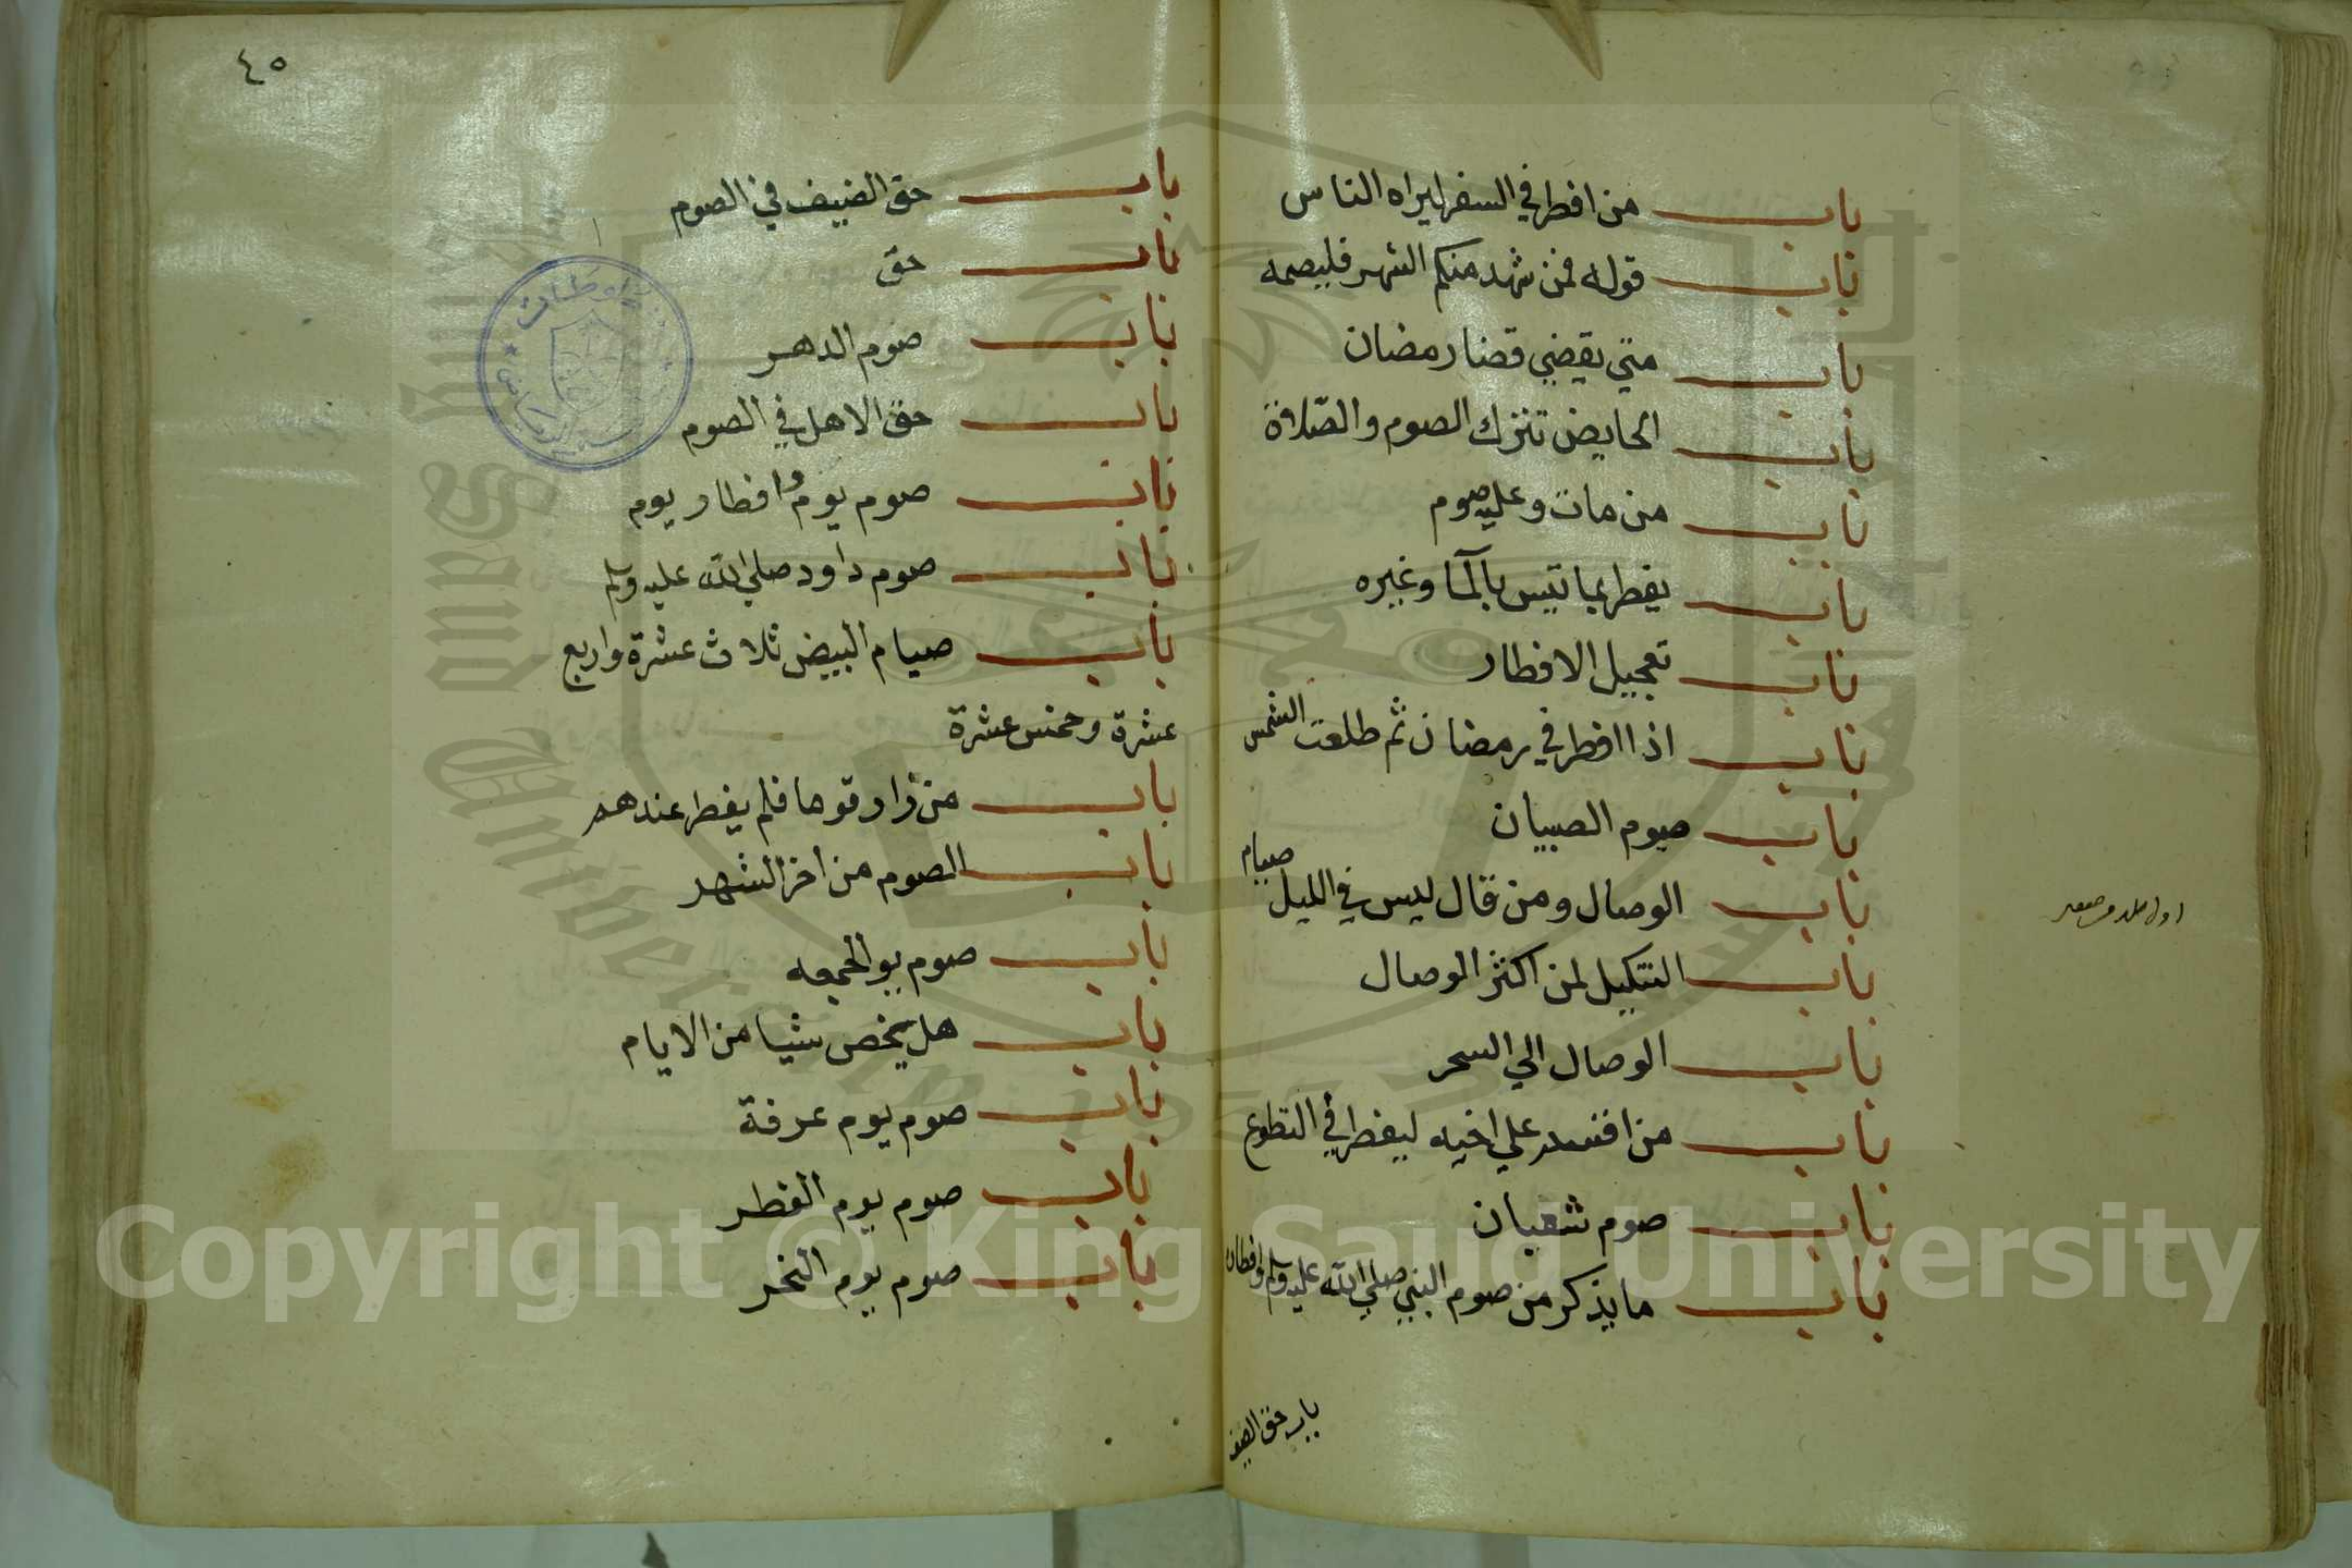 باب من افطر في السفر ليراه الناس
باب قوله فمن شهد منكم الشهر فليصمه
باب متي يقضي قضا رمضان
باب الحايض تترك الصوم والصلاة
باب من مات وعليه صوم
باب يفطر بما تيسر بالمآ وغيره
باب تعجيل الافطار
باب اذا افطر في رمضان ثم طلعت الشمس
باب صوم الصبيان
باب الوصال ومن قال ليس في الليل صيام
باب التنكيل لمن اكثر الوصال
باب الوصال الي السحر
باب من اقسم علي اخيه ليفطر في التطوع
باب صوم شعبان
باب ما يذكر من صوم النبي صلي الله عليه وسلم وافطاره
باب حق الضيف
٤٥
باب حق الضيف في الصوم
باب حق
باب صوم الدهر
باب حق الاهل في الصوم
باب صوم يوم وافطار يوم
باب صوم داود صلي الله عليه وسلم
باب صيام البيض ثلاث عشرة واربع
عشرة وخمس عشرة
باب من زار قوما فلم يفطر عندهم
باب الصوم من اخر الشهر
باب صوم يوم الجمعه
باب هل يخص شيا من الايام
باب صوم يوم عرفة
باب صوم يوم الفطر
باب صوم يوم النحر
Copyright © King Saud University